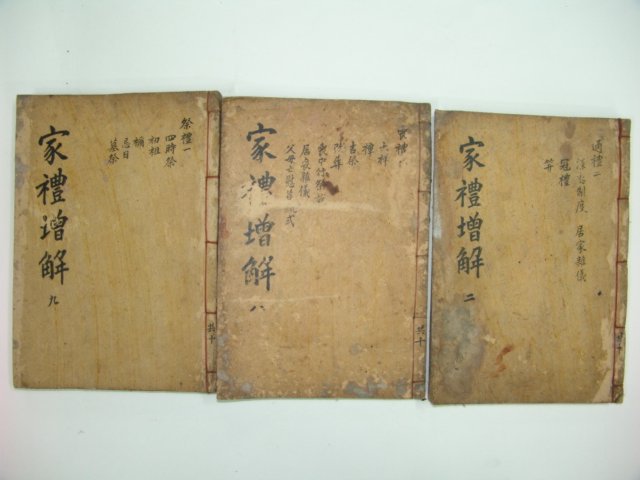 家禮增解 九
祭禮一
四時祭
初祖
禰
忌日
墓祭
共十
家禮增解 八
喪禮
大祥
禫
吉祭
居喪雜儀
共十
家禮增解 二
通禮二
深衣制度 居家雜儀
冠禮
笄
共十